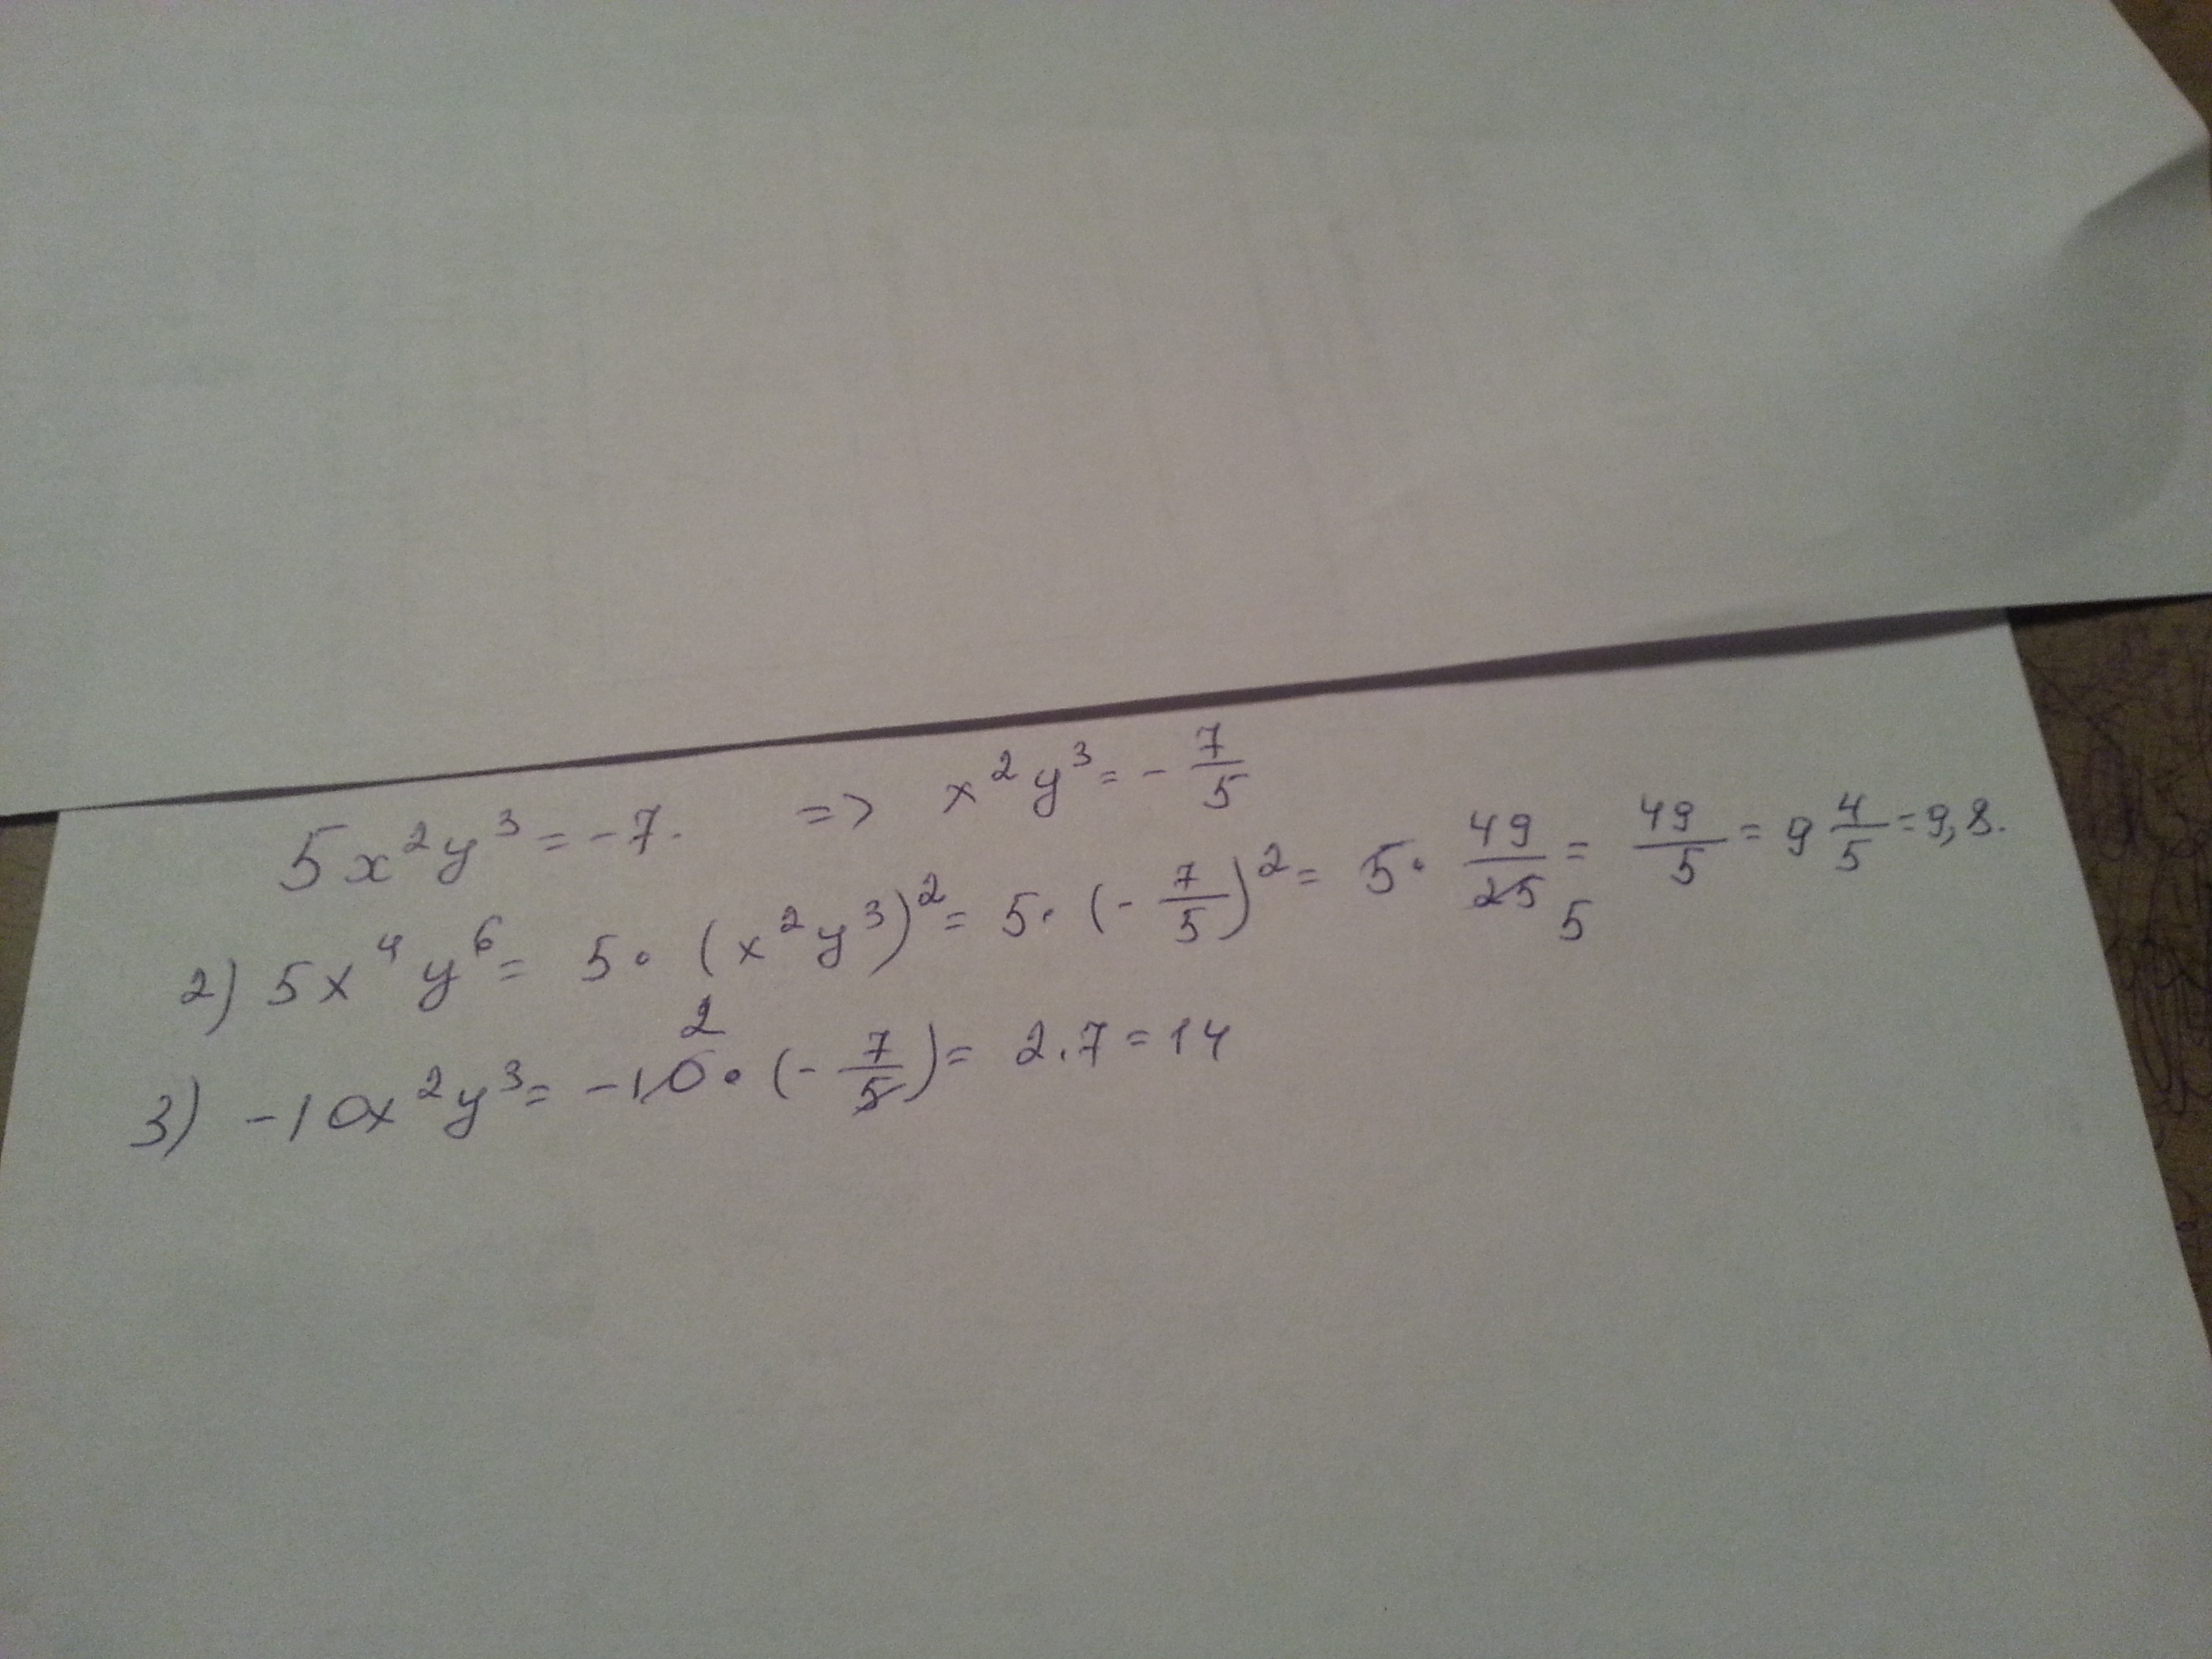 5x²y³ = -7. => x²y³ = - 7/5
2) 5x⁴y⁶ = 5 · (x²y³)² = 5 · (- 7/5)² = 5 · 49/25 5 = 49/5 = 9 4/5 = 9,8.
3) -10x²y³ = -10 2 · (- 7/5) = 2 · 7 = 14